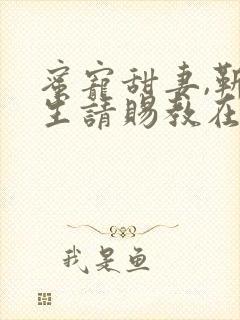 蜜寵甜妻,靳
生請賜教在
我是鱼